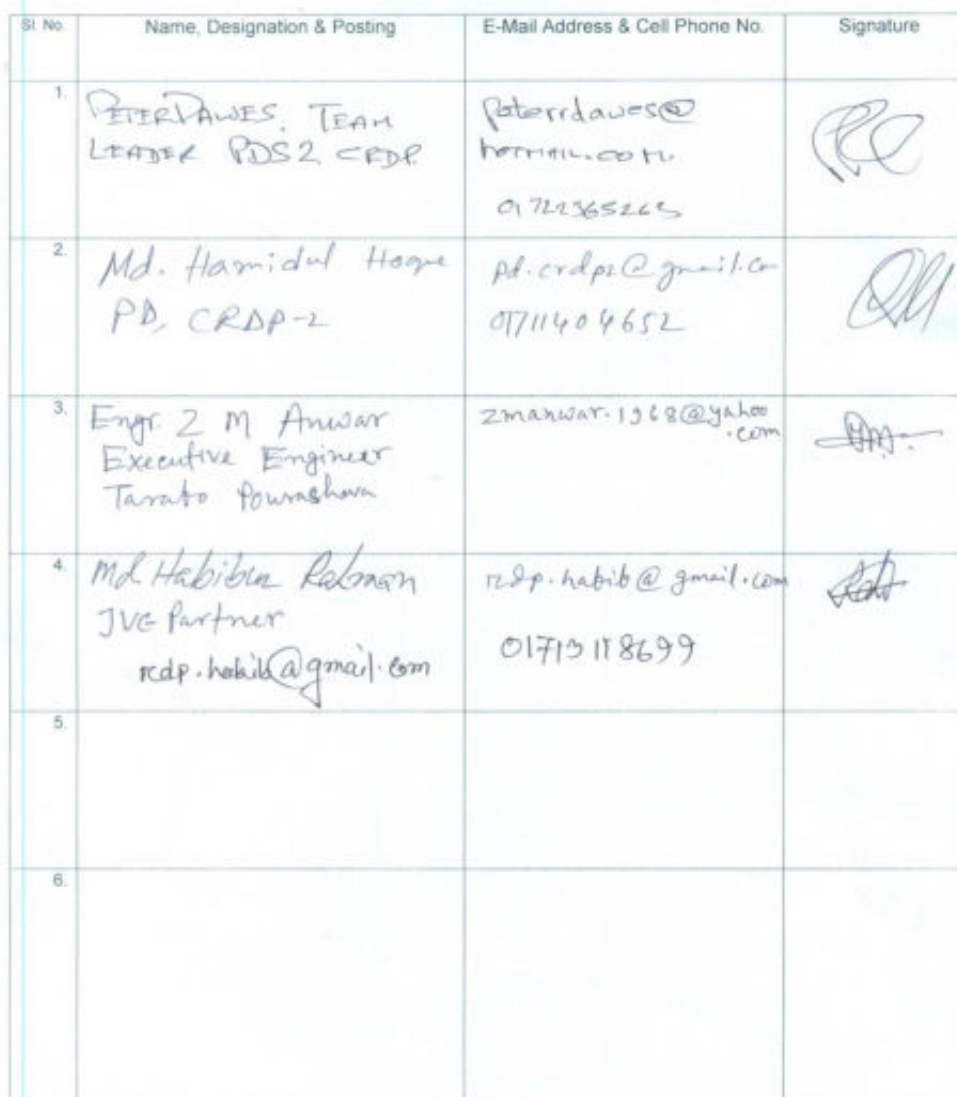 Sl. No. Name, Designation & Posting E-Mail Address & Cell Phone No. Signature
1. PETER DAWES. TEAM LEADER PDS2 CRDP.
peterrdawes@
hotmail.com.
01722365263
2. Md. Hamidul Hoque
PD, CRDP-2
pd.crdp2@gmail.co
01711404652
3. Engr. Z M Anwar
Executive Engineer
Tarabo Pourashava
zmanwar.1968@yahoo
.com
4. Md Habibur Rahman
JVC Partner
rcdp.habib@gmail.com
rcdp.habib@gmail.com
5.
6.